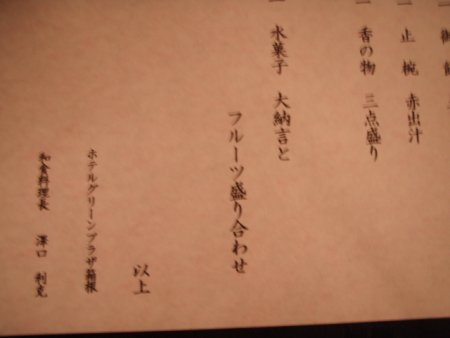 一 止 椀 赤出汁
一 香の物 三点盛り
一 水菓子 大納言と
フルーツ盛り合わせ
以上
ホテルグリーンプラザ箱根
和食料理長 澤口 利克